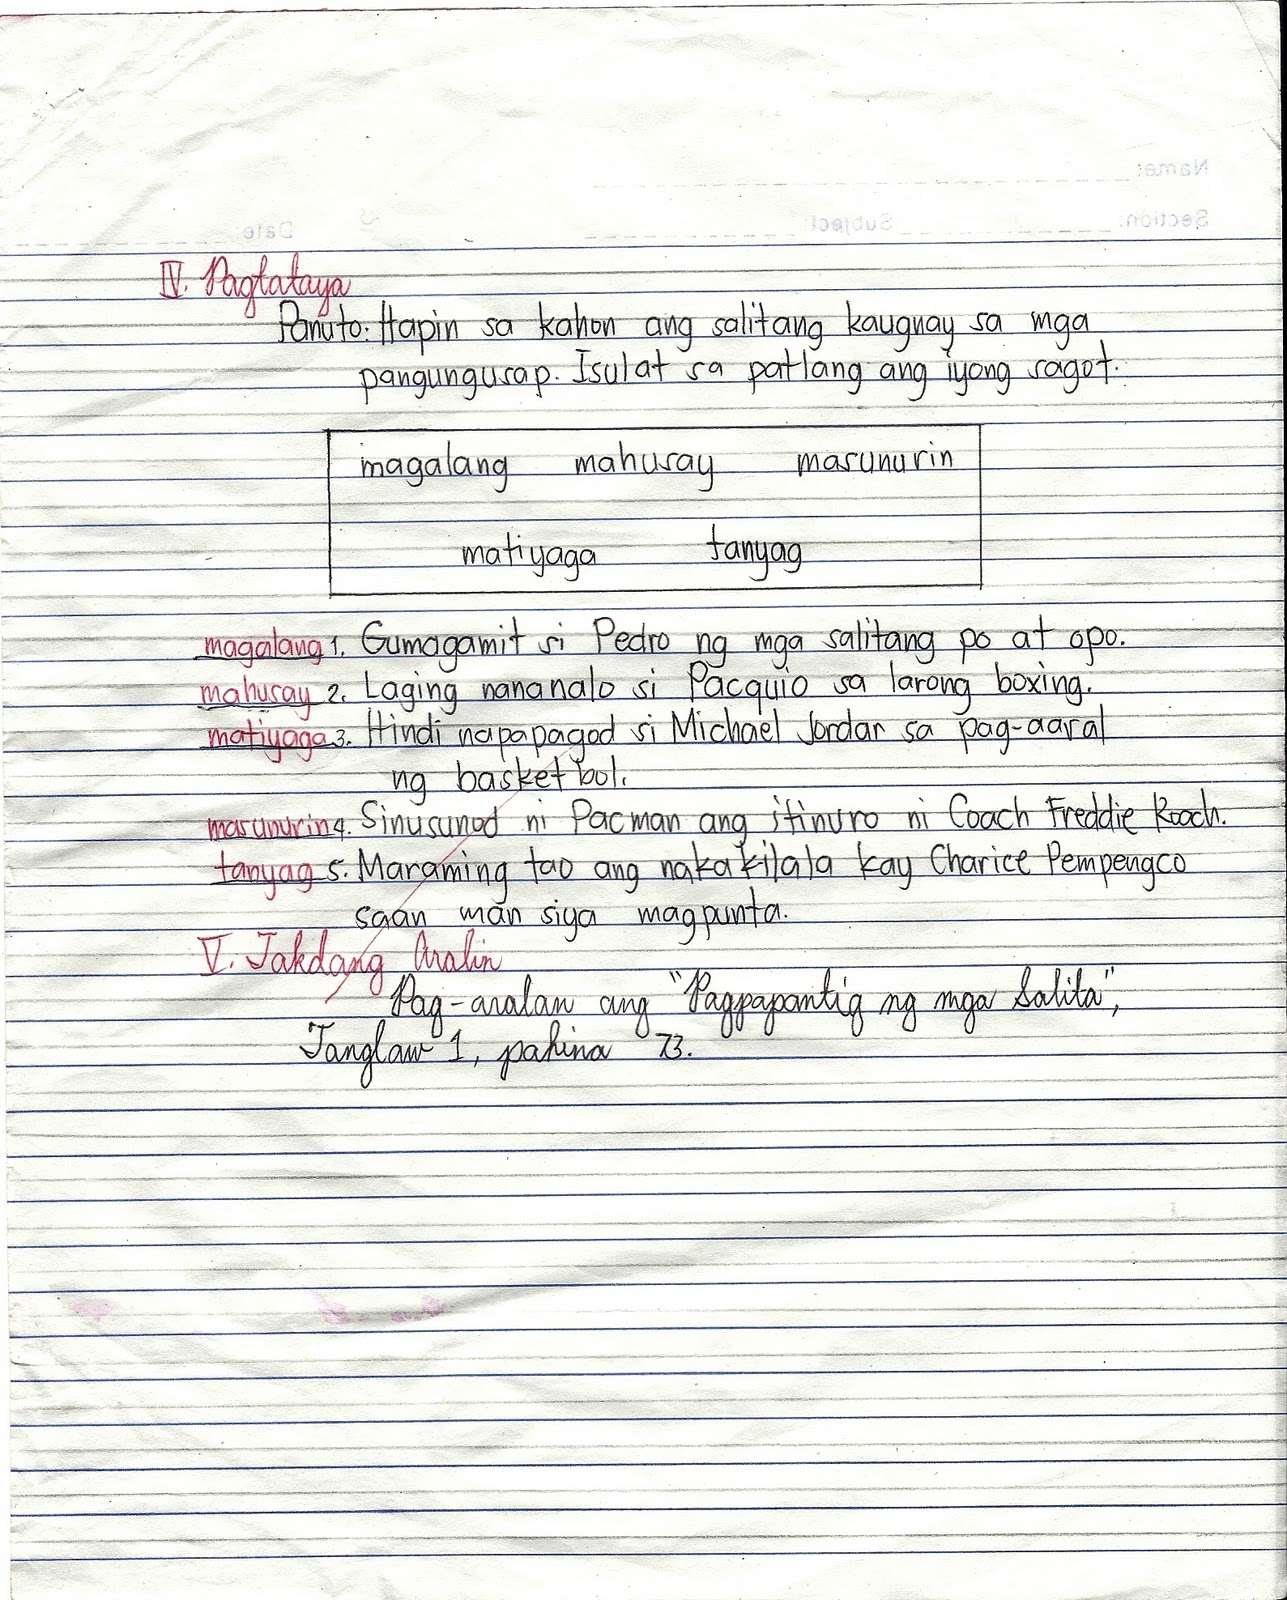 Name:
Section: Subject: Date:
IV. Pagtataya
Panuto: Hapin sa kahon ang salitang kaugnay sa mga
pangungusap. Isulat sa patlang ang iyong sagot.
magalang mahusay masunurin
matiyaga tanyag
magalang 1. Gumagamit si Pedro ng mga salitang po at opo.
mahusay 2. Laging nananalo si Pacquio sa larong boxing.
matiyaga 3. Hindi napapagod si Michael Jordan sa pag-aaral
ng basketbol.
masunurin 4. Sinusunod ni Pacman ang itinuro ni Coach Freddie Roach.
tanyag 5. Maraming tao ang nakakilala kay Charice Pempengco
saan man siya magpunta.
V. Takdang Aralin
Pag-aralan ang "Pagpapantig ng mga Salita",
Tanglaw 1, pahina 73.